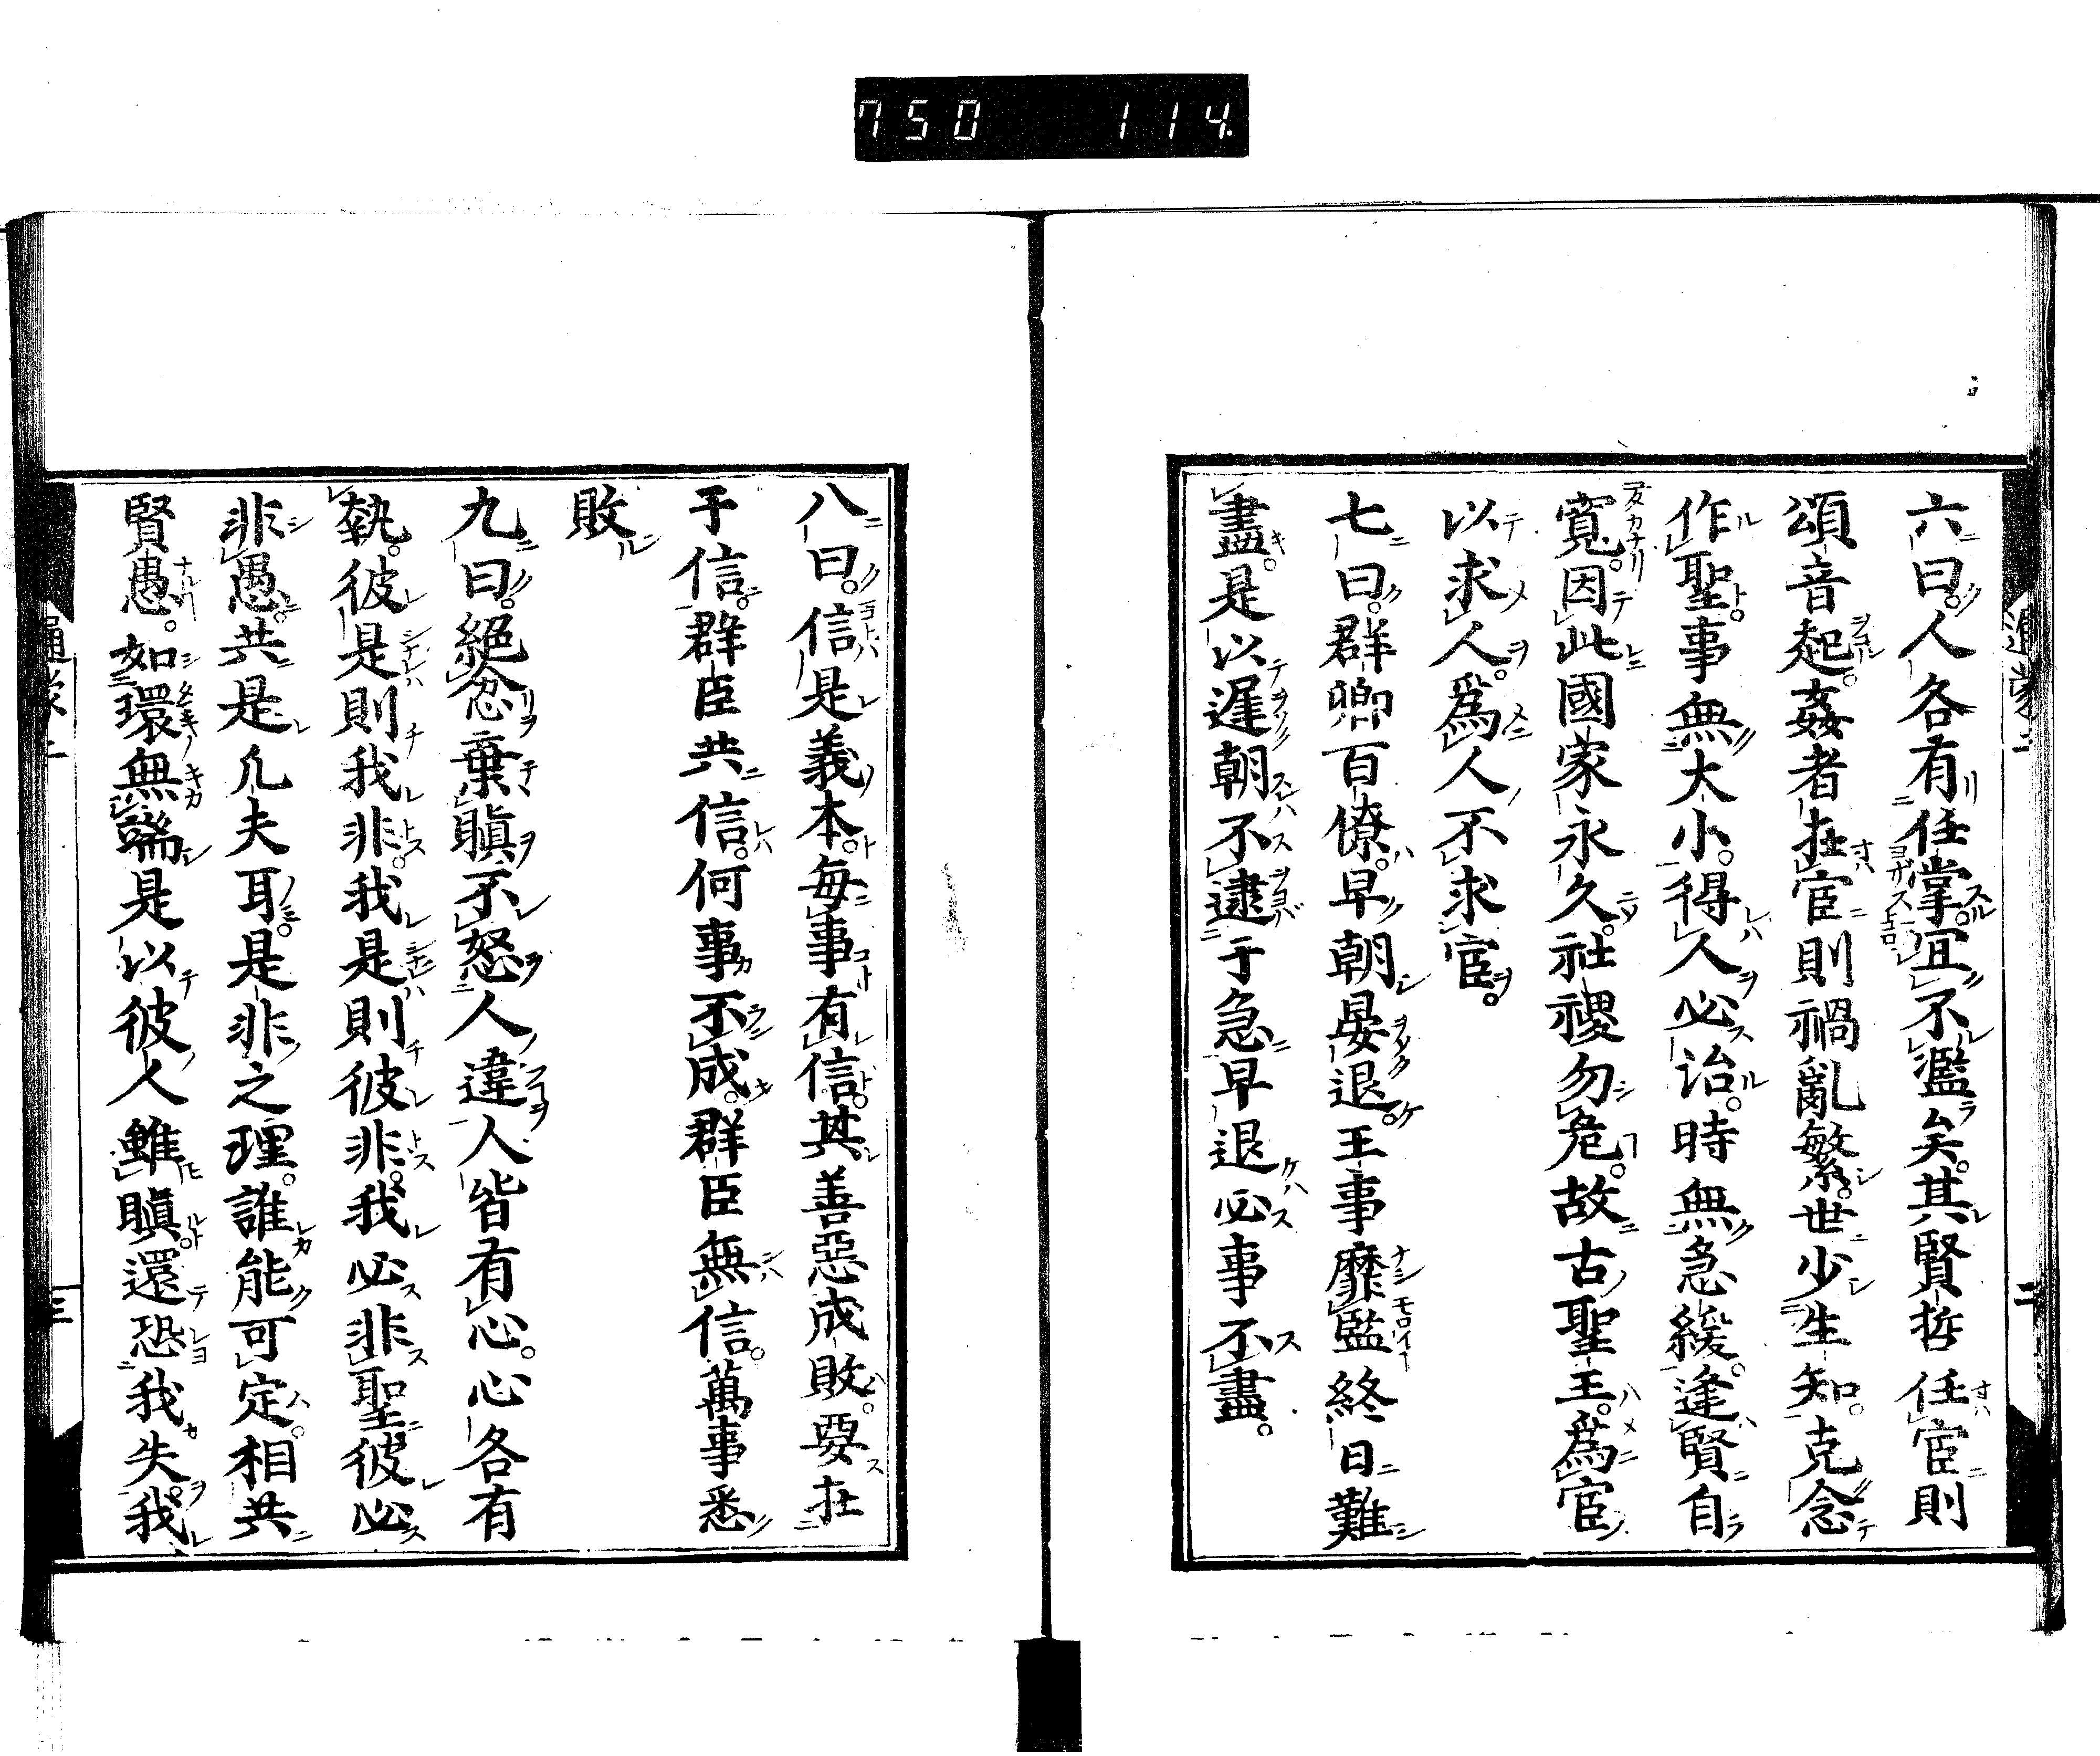 750 114
六曰人各有任掌宜不濫矣其賢哲任官則
頌音起姦者在官則禍亂繁世少生知克念
作聖事無大小得人必治時無急緩逢賢自
寬因此國家永久社稷勿危故古聖王爲官
以求人爲人不求官
七曰群卿百僚早朝晏退王事靡監終日難
盡是以遲朝不逮于急早退必事不盡
八曰信是義本每事有信其善惡成敗要在
于信群臣共信何事不成群臣無信萬事悉
敗
九曰絕忿棄瞋不怒人違人皆有心心各有
執彼是則我非我是則彼非我必非聖彼必
非愚共是凢夫耳是非之理誰能可定相共
賢愚如環無端是以彼人雖瞋還恐我失我
三